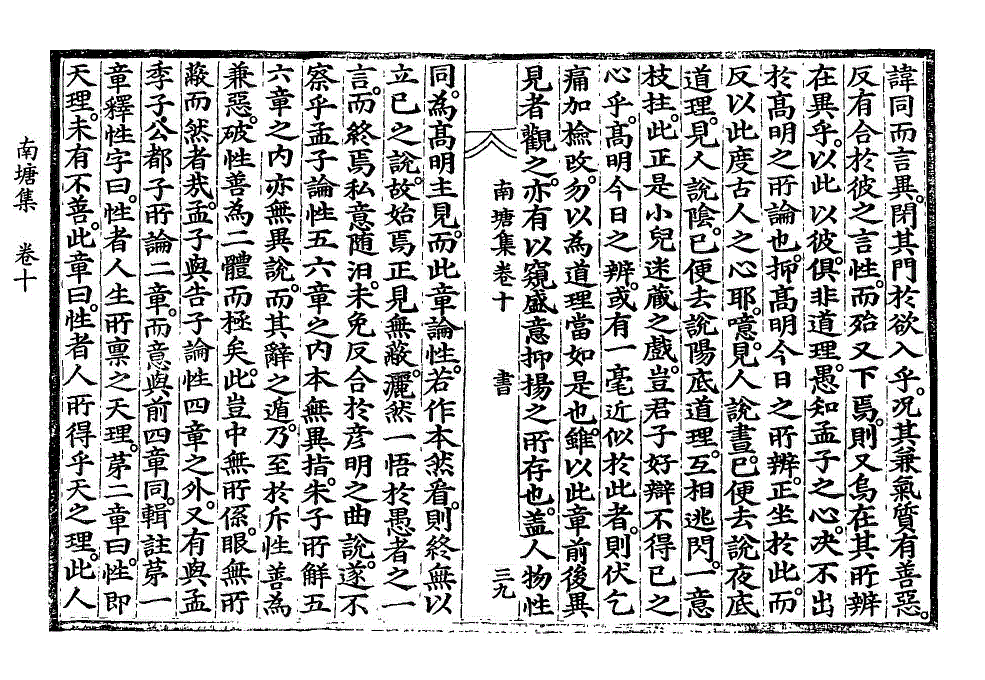 諱同而言異。閉其門於欲入乎。况其兼氣質有善惡。
反有合於彼之言性。而殆又下焉。則又烏在其所辨
在異乎。以此以彼。俱非道理。愚知孟子之心。决不出
於高明之所論也。抑高明今日之所辨。正坐於此。而
反以此度古人之心耶。噫。見人說晝。已便去說夜底
道理。見人說陰。已便去說陽底道理。互相逃閃。一意
枝拄。此正是小兒迷藏之戲。豈君子好辯不得已之
心乎。高明今日之辨。或有一毫近似於此者。則伏乞
痛加撿改。勿以爲道理當如是也。雖以此章前後異
見者觀之。亦有以窺盛意抑揚之所存也。盖人物性
南塘集卷十 書 三九
同。爲高明主見。而此章論性。若作本然看。則終無以
立已之說。故始焉正見無蔽。灑然一悟於愚者之一
言。而終焉私意隨汨。未免反合於彦明之曲說。遂不
察乎孟子論性五六章之內本無異指。朱子所解五
六章之內亦無異說。而其辭之遁。乃至於斥性善爲
兼惡。破性善爲二體而極矣。此豈中無所係。眼無所
蔽而然者哉。孟子與告子論性四章之外。又有與孟
季子公都子所論二章。而意與前四章同。輯註苐一
章釋性字曰。性者人生所禀之天理。苐二章曰。性。即
天理。未有不善。此章曰。性者人所得乎天之理。此人
南塘集 卷十